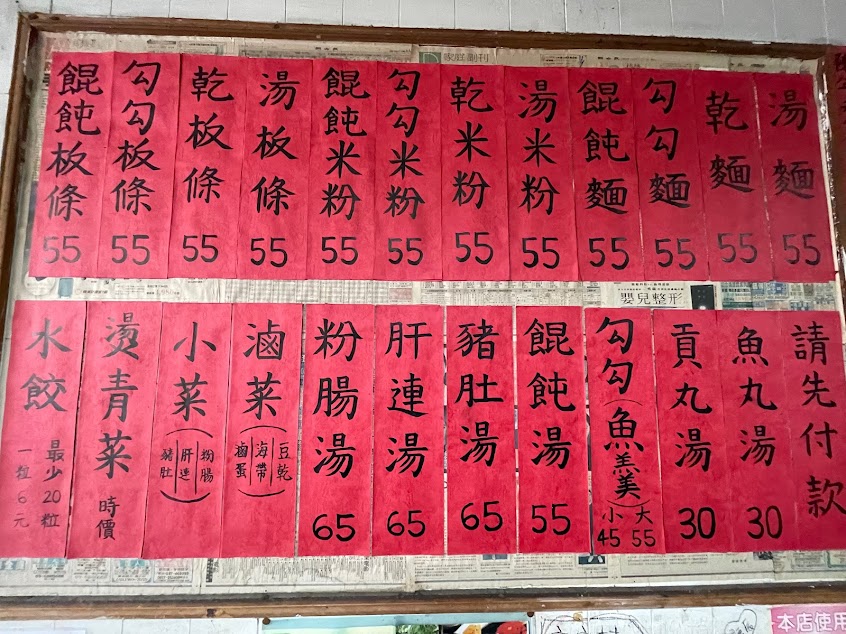 湯麵 55
乾麵 55
勾勾麵 55
餛飩麵 55
湯米粉 55
乾米粉 55
勾勾米粉 55
餛飩米粉 55
湯板條 55
乾板條 55
勾勾板條 55
餛飩板條 55
請先付款
魚丸湯 30
貢丸湯 30
勾勾(魚羹) 大55 小45
餛飩湯 55
豬肚湯 65
肝連湯 65
粉腸湯 65
滷菜(豆乾|海帶|滷蛋)
小菜(粉腸|肝連|豬肚)
燙青菜 時價
水餃 最少20粒 一粒6元
嬰兒整形
家庭副刊
本店使用